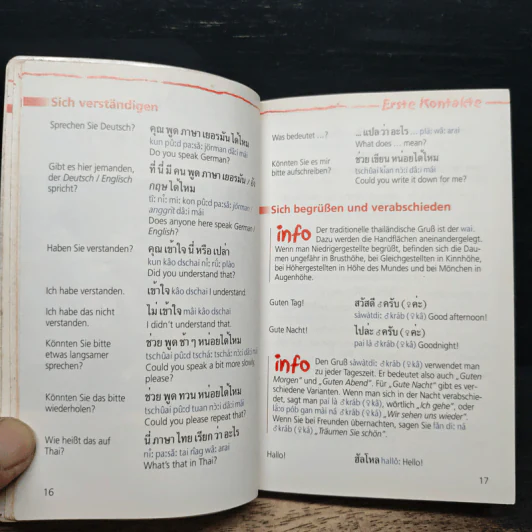 Sich verständigen
Sprechen Sie Deutsch?
คุณ พูด ภาษา เยอรมัน ได้ไหม
kun pû:d pa:să: jörman dâ:i mái
Do you speak German?
Gibt es hier jemanden,
der Deutsch / Englisch
spricht?
ที่ นี่ มี คน พูด ภาษา เยอรมัน / อัง
กฤษ ได้ไหม
Does anyone here speak German /
English?
Haben Sie verstanden?
คุณ เข้าใจ นี่ หรือ เปล่า
Did you understand that?
Ich habe verstanden.
เข้าใจ kâo dschai I understand.
Ich habe das nicht
verstanden.
ไม่ เข้าใจ mâi kâo dschai
I didn't understand that.
Könnten Sie bitte
etwas langsamer
sprechen?
ช่วย พูด ช้า ๆ หน่อยได้ไหม
Could you speak a bit more slowly,
please?
Könnten Sie das bitte
wiederholen?
ช่วย พูด ทวน หน่อยได้ไหม
Could you please repeat that?
Wie heißt das auf
Thai?
นี่ ภาษา ไทย เรียก ว่า อะไร
What's that in Thai?
16
Erste Kontakte
Was bedeutet ...?
... แปล ว่า อะไร ... plä: wâ: arai
What does ... mean?
Könnten Sie es mir
bitte aufschreiben?
ช่วย เขียน หน่อยได้ไหม
Could you write it down for me?
Sich begrüßen und verabschieden
info Der traditionelle thailändische Gruß ist der wai.
Dazu werden die Handflächen aneinandergelegt.
Wenn man Niedrigergestellte begrüßt, befinden sich die Dau-
men ungefähr in Brusthöhe, bei Gleichgestellten in Kinnhöhe,
bei Höhergestellten in Höhe des Mundes und bei Mönchen in
Augenhöhe.
Guten Tag!
สวัสดี ♂ครับ (♀ค่ะ)
sàwàtdi: ♂kráb (♀kâ) Good afternoon!
Gute Nacht!
ไปละ ♂ครับ (♀ค่ะ)
pai lá ♂kráb (♀kâ) Goodnight!
info Den Gruß sàwàtdi: ♂kráb (♀kâ) verwendet man
zu jeder Tageszeit. Er bedeutet also auch „Guten
Morgen" und „Guten Abend". Für „Gute Nacht" gibt es ver-
schiedene Varianten. Wenn man sich in der Nacht verabschie-
det, sagt man pai lá ♂kráb (♀kâ), wörtlich „Ich gehe", oder
♂kráb (♀kâ) „Wir sehen uns wieder".
Wenn Sie bei Freunden übernachten, sagen Sie făn di: ná
♂kráb (♀kâ) „Träumen Sie schön".
Hallo!
ฮัลโหล hallŏ: Hello!
17